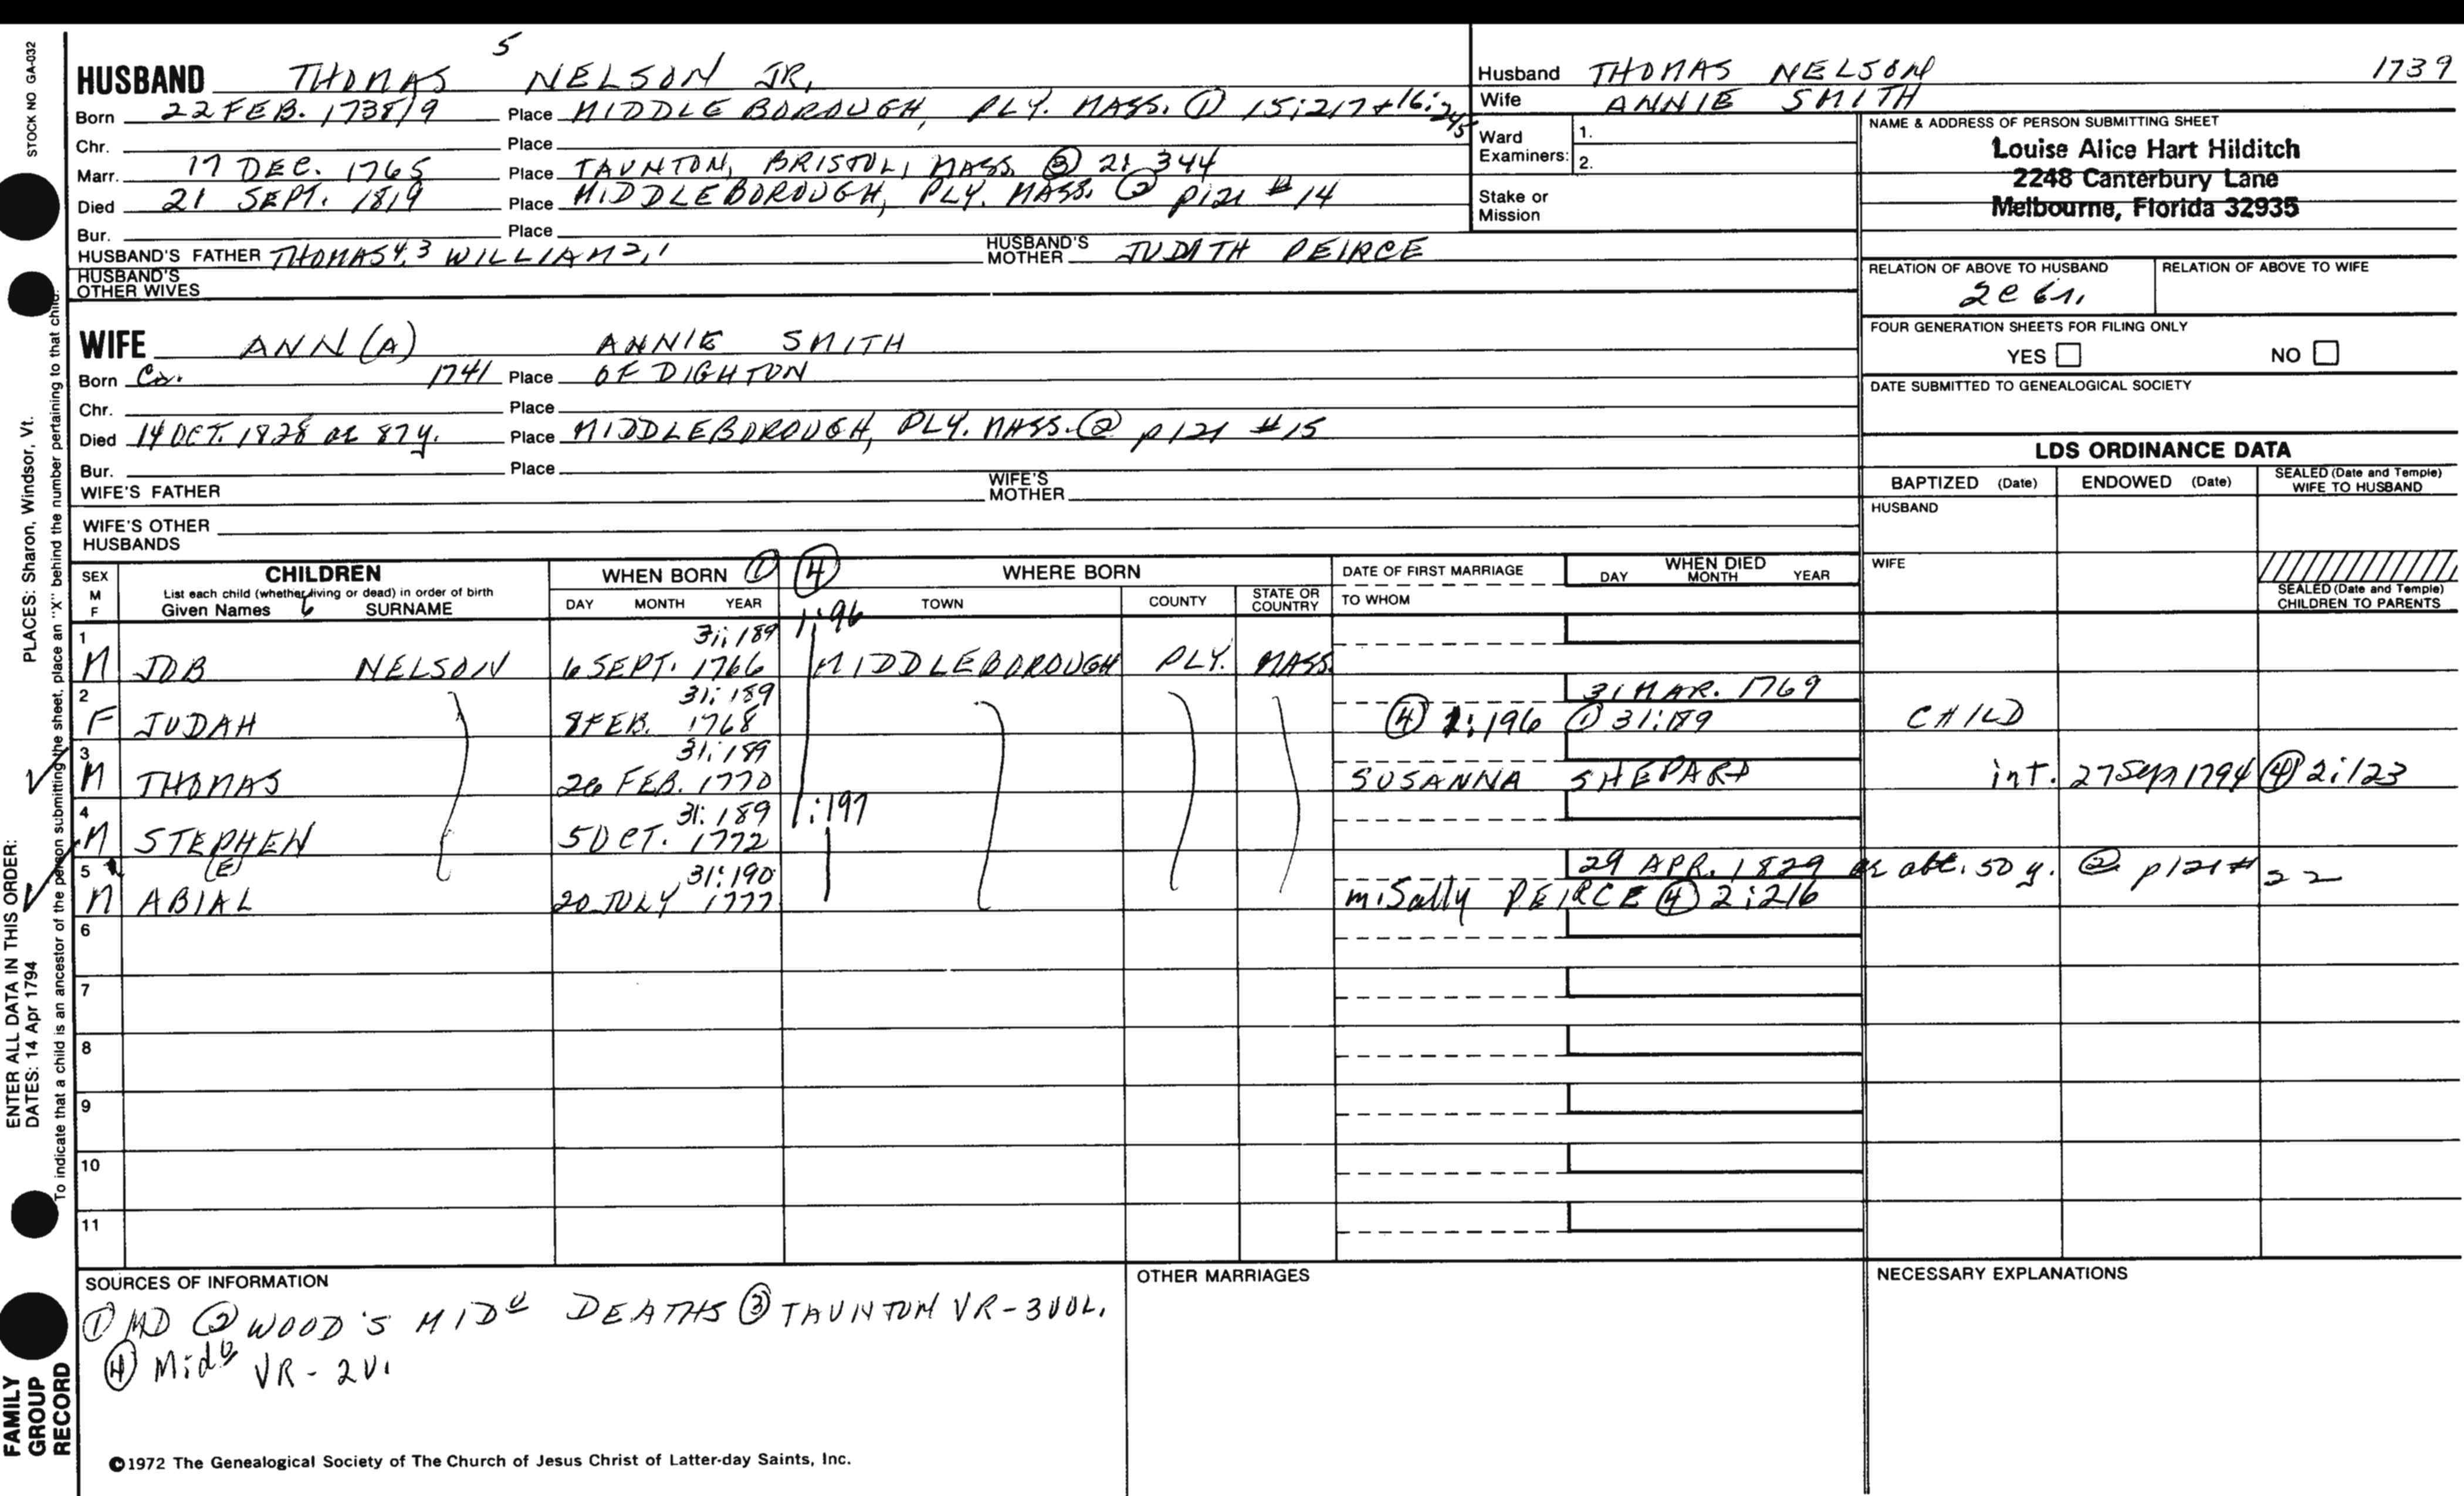 STOCK NO GA-032
5
HUSBAND THOMAS NELSON JR.
Born 22 FEB. 1738/9 Place MIDDLEBOROUGH, PLY. MASS. ① 15:217+16:245
Chr. Place
Marr. 17 DEC. 1765 Place TAUNTON, BRISTOL, MASS ③ 2: 344
Died 21 SEPT. 1819 Place MIDDLEBOROUGH, PLY. MASS. ② p121 #14
Bur. Place
HUSBAND'S FATHER THOMAS 4,3 WILLIAM 2,1 HUSBAND'S MOTHER JUDITH PEIRCE
HUSBAND'S OTHER WIVES
WIFE ANN(A) ANNIE SMITH
Born Ca. 1741 Place OF DIGHTON
Chr. Place
Died 14 OCT. 1828 ae 87 y. Place MIDDLEBOROUGH, PLY. MASS. ② p121 #15
Bur. Place
WIFE'S FATHER WIFE'S MOTHER
WIFE'S OTHER HUSBANDS
Husband THOMAS NELSON 1739
Wife ANNIE SMITH
Ward Examiners: 1.
2.
Stake or Mission
NAME & ADDRESS OF PERSON SUBMITTING SHEET
Louise Alice Hart Hilditch
2248 Canterbury Lane
Melbourne, Florida 32935
RELATION OF ABOVE TO HUSBAND RELATION OF ABOVE TO WIFE
2c 6r.
FOUR GENERATION SHEETS FOR FILING ONLY
YES NO
DATE SUBMITTED TO GENEALOGICAL SOCIETY
LDS ORDINANCE DATA
BAPTIZED (Date) ENDOWED (Date) SEALED (Date and Temple) WIFE TO HUSBAND
HUSBAND
WIFE
SEALED (Date and Temple) CHILDREN TO PARENTS
SEX M F
CHILDREN
List each child (whether living or dead) in order of birth
Given Names 6 SURNAME
WHEN BORN ① ④ WHERE BORN
DAY MONTH YEAR TOWN COUNTY STATE OR COUNTRY
DATE OF FIRST MARRIAGE
TO WHOM
WHEN DIED
DAY MONTH YEAR
1:96
1 31:189
M JOB NELSON 6 SEPT. 1766 MIDDLEBOROUGH PLY. MASS.
2 31:189 31 MAR. 1769
F JUDAH 8 FEB. 1768 ④ 1:196 ① 31:189 CHILD
3 31:189
M THOMAS 26 FEB. 1770 SUSANNA SHEPARD int. 27 Sep 1794 ④ 2:123
4 31:189 1:197
M STEPHEN 5 OCT. 1772
5 (E) 31:190 29 APR. 1829 ae abt. 50 y. ② p121 #22
M ABIAL 20 JULY 1777 m. Sally PEIRCE ④ 2:216
6
7
8
9
10
11
SOURCES OF INFORMATION
① MD ② WOOD'S MIDO DEATHS ③ TAUNTON VR-3VOL.
④ Mido VR-2V.
OTHER MARRIAGES
NECESSARY EXPLANATIONS
©1972 The Genealogical Society of The Church of Jesus Christ of Latter-day Saints, Inc.
PLACES: Sharon, Windsor, Vt.
ENTER ALL DATA IN THIS ORDER:
DATES: 14 Apr 1794
To indicate that a child is an ancestor of the person submitting the sheet, place an "X" behind the number pertaining to that child.
FAMILY GROUP RECORD